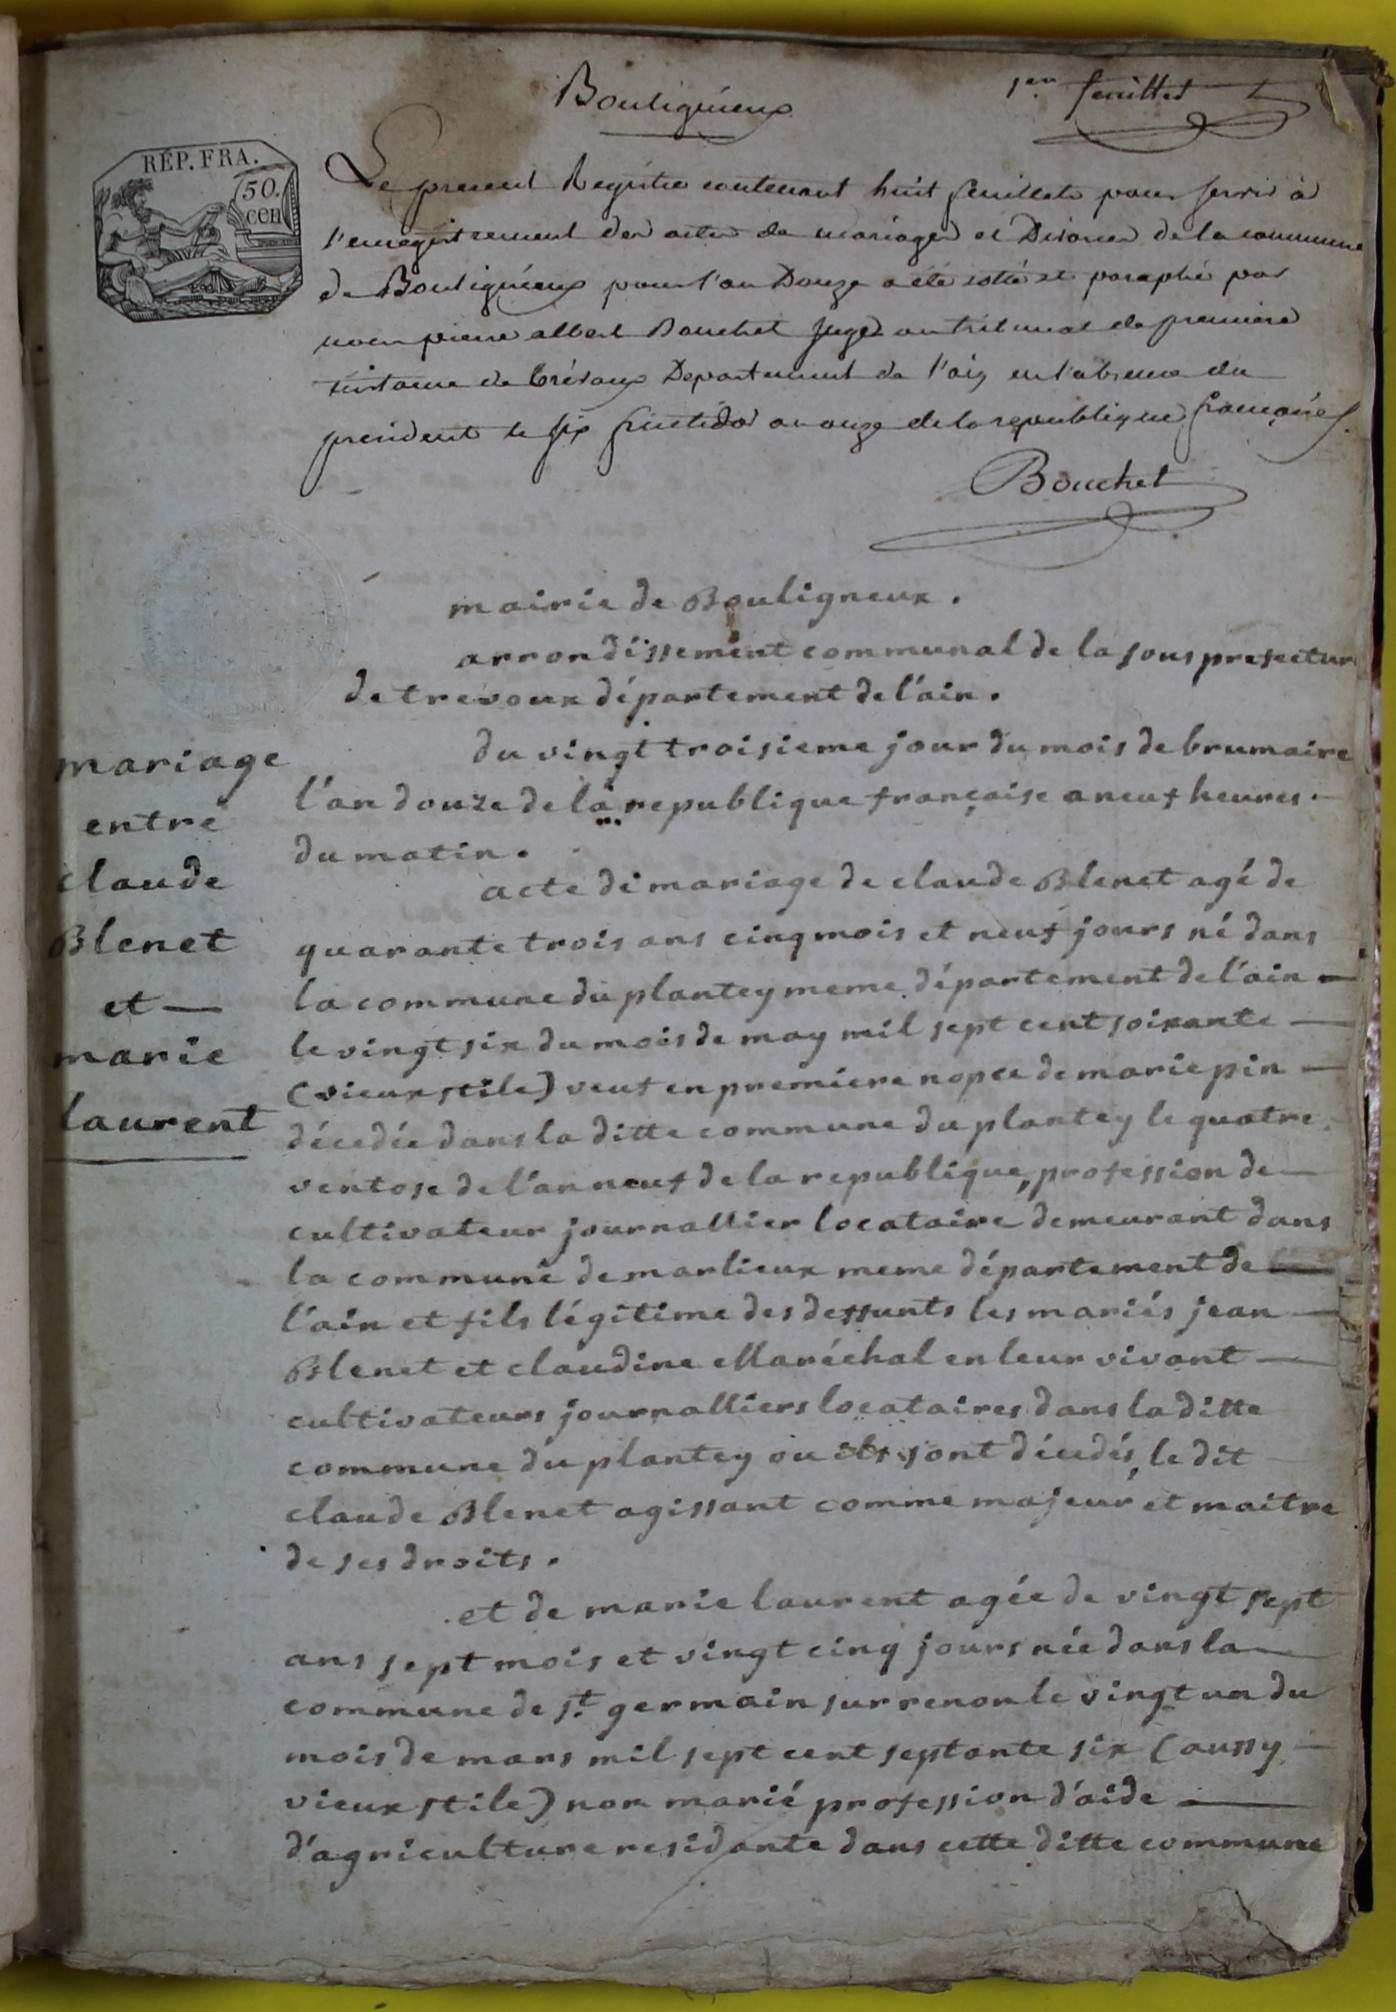 Bouligneux
1er feuillet
RÉP. FRA.
50.
cen
Le present Registre contenant huit feuillets pour servir à
l'enregistrement des actes de mariages et Divorces de la commune
de Bouligneux pour l'an Douze a été cotté et paraphé par
nous pierre albert Bouchet Juge au tribunal de premiere
instance de trévoux Departement de l'ain en l'absence du
president le six fructidor an onze de la republique française.
Bouchet
mairie de Bouligneux.
arrondissement communal de la sous prefecture
de trevoux département de l'ain.
du vingt troisieme jour du mois de brumaire
l'an douze de la republique française a neuf heures
du matin.
mariage
entre
claude
Blenet
et
marie
laurent
acte de mariage de claude Blenet agé de
quarante trois ans cinq mois et neuf jours né dans
la commune du plantey meme département de l'ain
le vingt six du mois de may mil sept cent soixante
(vieux stile) veuf en premiere nopce de marie pin
décedée dans la ditte commune du plantey le quatre
ventose de l'an neuf de la republique, profession de
cultivateur journallier locataire demeurant dans
la commune de marlieux meme département de
l'ain et fils légitime des deffunts les mariés jean
Blenet et claudine Maréchal en leur vivant
cultivateurs journalliers locataires dans la ditte
commune du plantey ou ils sont décedés, le dit
claude Blenet agissant comme majeur et maitre
de ses droits.
et de marie laurent agée de vingt sept
ans sept mois et vingt cinq jours née dans la
commune de st. germain sur renon le vingt un du
mois de mars mil sept cent septante six (aussy
vieux stile) non marié profession d'aide
d'agriculture residante dans cette ditte commune